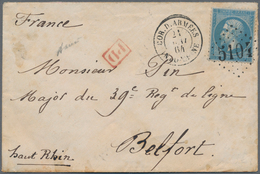 France
COR. D. ARMÉES
21
64
PD
5104
Monsieur Pin
Major du 39e Regt de Ligne
Belfort
haut Rhin